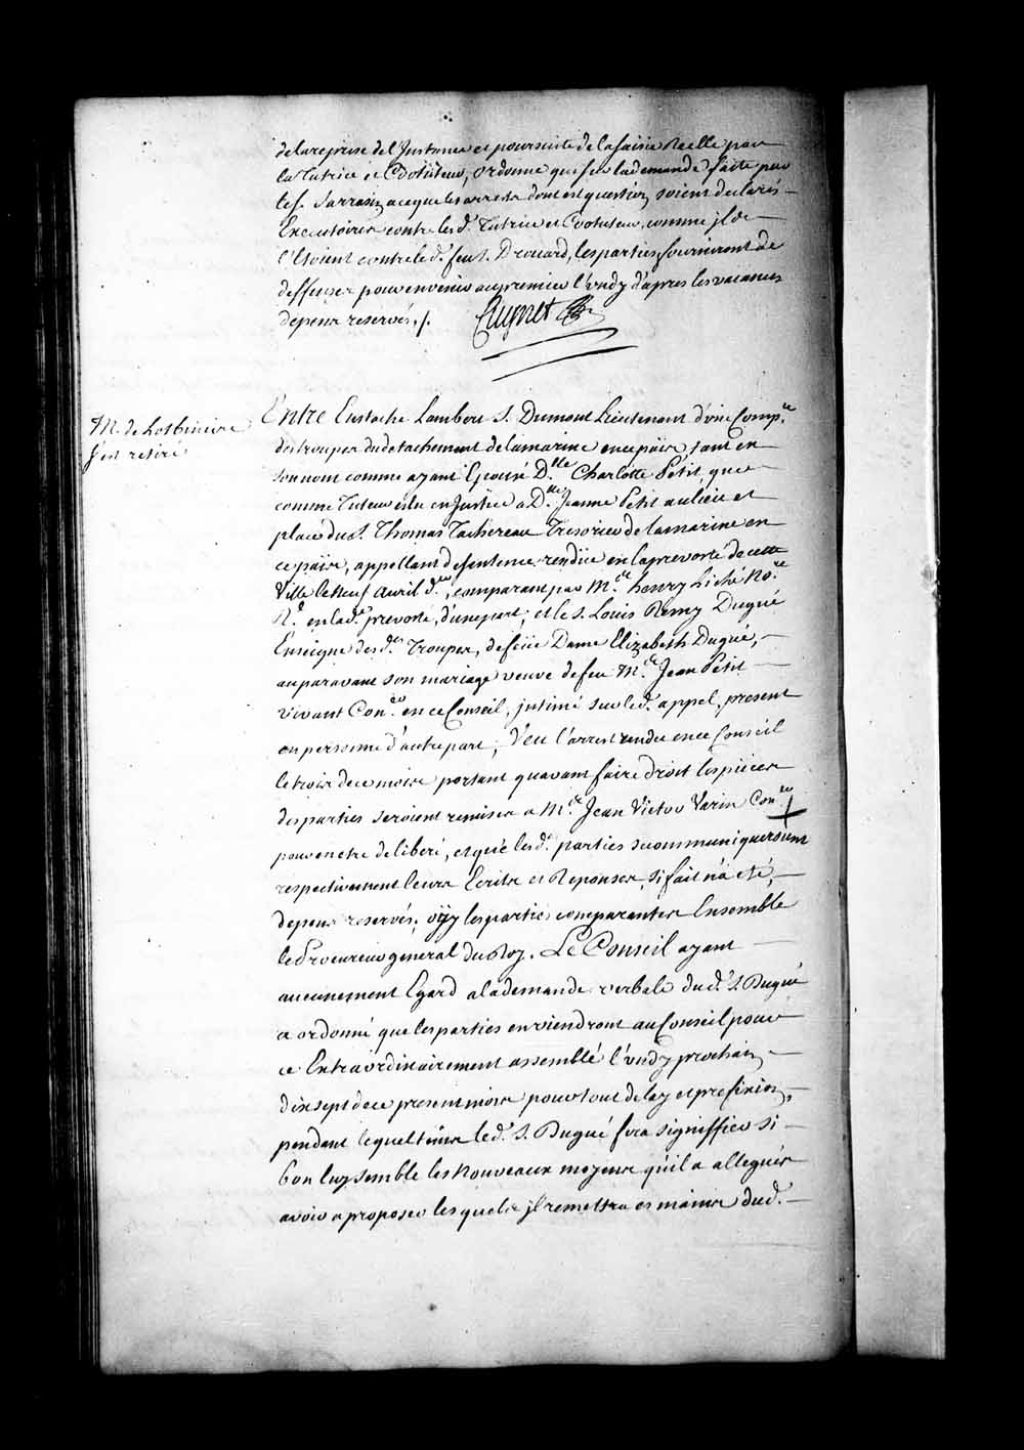 de la reprise de l'Instance et poursuite de la saisie Reelle par
la Tutrice et Cotuteur, ordonne que sur la demande faite par
le s. Sarrazin a ce que les arrests dont est question soient declarés
Executoires contre lesd. Tutrice et Cotuteur, comme jls
l'Etoient contre led. feu s. Drouard, les parties fourniront de
deffenses pour en venir au premier Lundy d'apres les vacances
depens reservés ./.
Cugnet
M. de Lotbiniere
s'est retiré
Entre Eustache Lambert s. Dumont Lieutenant d'une Comp.e
des troupes du detachement de la marine en ce païs, tant en
son nom comme ayant Epousé D.lle Charlotte Petit, que
comme Tuteur élu en Justice a D.lle Jeanne Petit au lieu et
place du s. Thomas Tachereau Tresorier de la marine en
ce païs, appellant de sentence rendüe en la prevosté de cette
Ville le Neuf Avril d.er, comparant par M.e henry hiché No.re
R.l en lad. prevosté, d'une part; et le s. Louis Remy Dugué
Enseigne desd.es Troupes, de feüe Dame Elizabeth Dugué,
auparavant son mariage veuve de feu M.e Jean Petit
vivant Con.er en ce Conseil, jntimé sur led. appel, present
en personne d'autre part; Veu l'arrest rendu en ce Conseil
le trois de ce mois portant qu'avant faire droit les pieces
des parties seroient remises a M.e Jean Victor Varin Con.er
pour en etre deliberé, et que lesd. parties se communiqueroient
respectivement leurs Ecrits et Reponses, si fait n'a eté,
depens reservés; oüy les parties comparantes Ensemble
le Procureur general du Roy. Le Conseil ayant
aucunement Egard a la demande verbale dud. s. Dugué
a ordonné que les parties en viendront au Conseil pour
ce Extraordinairement assemblé Lundy prochain
dix sept de ce present mois pour tout delay et prefixion,
pendant lequel tems led. s. Dugué fera signiffier si
bon luy semble les Nouveaux moyens qu'il a allegués
avoir a proposer lesquels jl remettra es mains dud.